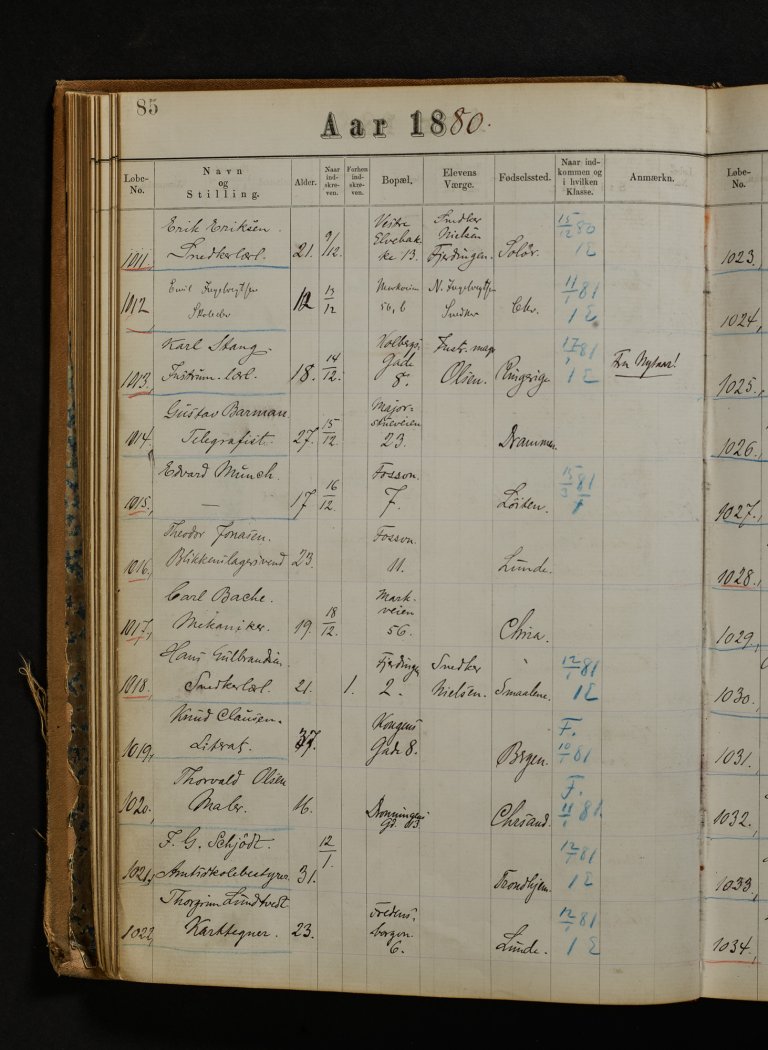 85
Aar 1880.
Løbe-No.
Navn og Stilling.
Alder.
Naar ind-skre-ven.
Forhen ind-skre-ven.
Bopæl,
Elevens Værge.
Fødselssted.
Naar ind-kommen og i hvilken Klasse.
Anmærkn.
Løbe-No.
Erik Eriksen. Vestre Snedker 15/12 80
1011, Snedkerlærl. 21. 9/12. Elvebak-ke 13. Nielsen Fjerdingen. Solør. 1 E
1023,
Emil Ingebregtsen Markveien N. Ingebregtsen 11/1 81
1012, Skoleelev 12 13/12 56, b Snedker Chr. 1 E
1024,
Karl Stang. Holbergs Instr. mag. 17/1 81
1013, Instrum. lærl. 18. 14/12. Gade 8. Olsen. Ringerige 1 E
1025,
Gustav Barman. Major-
1014, Telegrafist. 27. 15/12 stueveien 23. Drammen.
1026,
Edvard Münch. Fosson. 15/3 81
1015, — 17 16/12. 7. Löiten.
1027,
Theodor Jonasen. Fosson.
1016, Blikkenslagersvend 23. 11. Lunde.
1028,
Carl Bache. Mark-
1017, Mekaniker. 19. 18/12. veien 56. Chria.
1029,
Hans Gulbrandsen. Fjerdingen Snedker 12/1 81
1018, Snedkerlærl. 21. 1. 2. Nielsen. Smaalene. 1 E
1030,
Knud Clausen. Kongens F.
1019, Literat. 37. Gade 8. Bergen. 10/1 81
1031,
Thorvald Olsen F.
1020, Maler. 16. Dronningens Gd. Chrsand. 11/1 81
1032,
F. G. Schjödt. 12/1. 12/1 81
1021, Amtsskolebestyrer. 31. Trondhjem. 1 E
1033,
Thorgrim Lundtvedt Fredens- 12/1 81
1022, Karttegner. 23. borgvn. 6. Lunde. 1 E
1034,